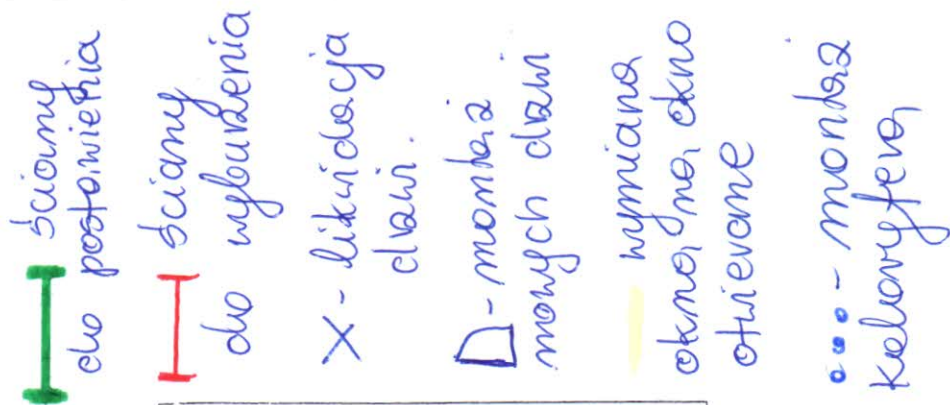 ściany
do postawienia
ściany
do wyburzenia
X - likwidacja
drzwi.
- montaż
nowych drzwi
wymiana
okna na okno
otwierane
- montaż
kaloryfera